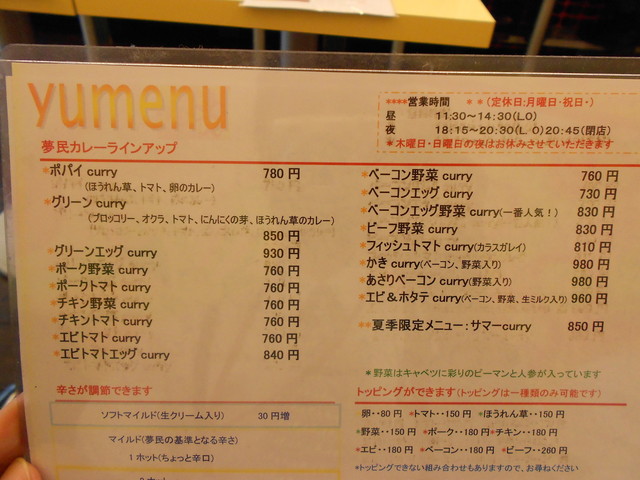 yumenu
****営業時間 **(定休日:月曜日・祝日・)
昼 11:30～14:30(LO)
夜 18:15～20:30(L O)20:45(閉店)
*木曜日・日曜日の夜はお休みさせていただきます
夢民カレーラインアップ
*ポパイ curry 780 円
(ほうれん草、トマト、卵のカレー)
*グリーン curry
(ブロッコリー、オクラ、トマト、にんにくの芽、ほうれん草のカレー)
850 円
*グリーンエッグ curry 930 円
*ポーク野菜 curry 760 円
*ポークトマト curry 760 円
*チキン野菜 curry 760 円
*チキントマト curry 760 円
*エビトマト curry 760 円
*エビトマトエッグ curry 840 円
*ベーコン野菜 curry 760 円
*ベーコンエッグ curry 730 円
*ベーコンエッグ野菜 curry(一番人気！) 830 円
*ビーフ野菜 curry 830 円
*フィッシュトマト curry(カラスガレイ) 810 円
*かき curry(ベーコン、野菜入り) 980 円
*あさりベーコン curry(野菜入り) 980 円
*エビ＆ホタテ curry(ベーコン、野菜、生ミルク入り) 960 円
**夏季限定メニュー：サマーcurry 850 円
*野菜はキャベツに彩りのピーマンと人参が入っています
辛さが調節できます
ソフトマイルド(生クリーム入り) 30 円増
マイルド(夢民の基準となる辛さ)
1 ホット(ちょっと辛口)
トッピングができます(トッピングは一種類のみ可能です)
卵・・80 円 *トマト・・150 円 *ほうれん草・・150 円
*野菜・・150 円 *ポーク・・180 円 *チキン・・180 円
*エビ・・180 円 *ベーコン・・180 円 *ビーフ・・260 円
*トッピングできない組み合わせもありますので、お尋ねください